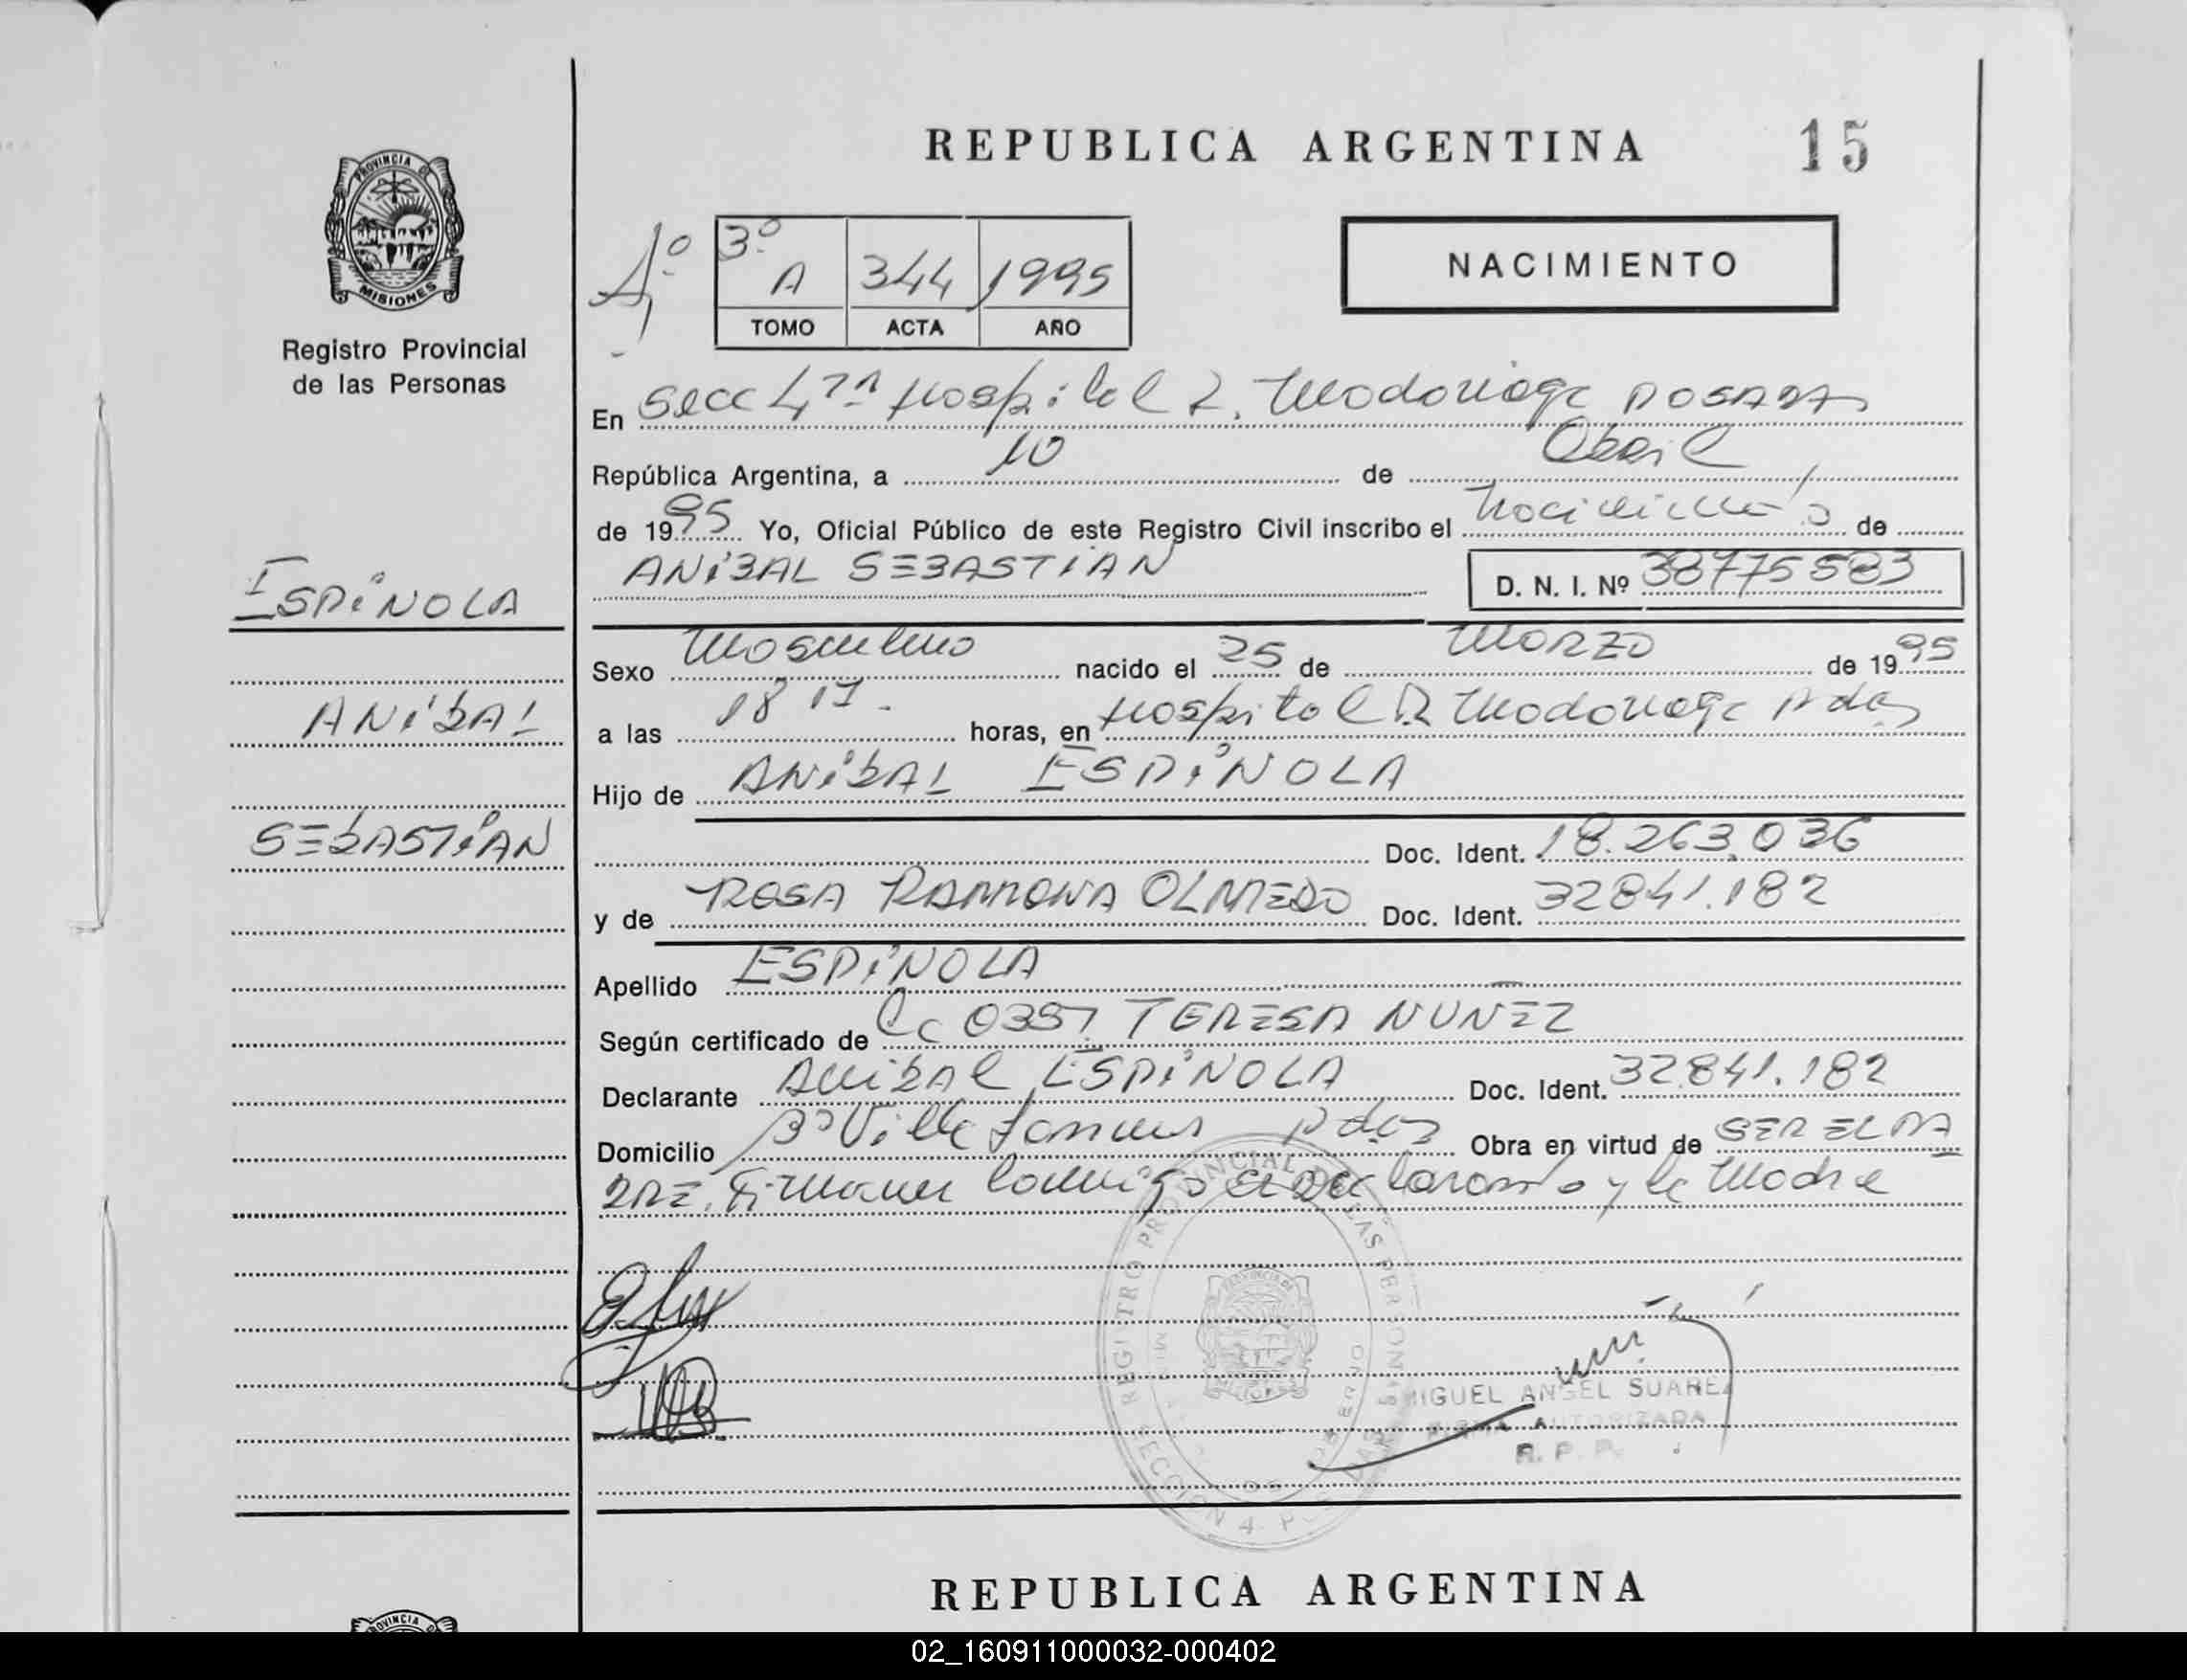 REPUBLICA ARGENTINA
15
PROVINCIA DE
MISIONES
Registro Provincial
de las Personas
3º
A 344 1995
TOMO ACTA AÑO
NACIMIENTO
En Secc 4ta Hospital R. Madariaga POSADAS
República Argentina, a 10 de Abril
de 1995 Yo, Oficial Público de este Registro Civil inscribo el Nacimiento de
ANIBAL SEBASTIAN D. N. I. Nº 38775583
ESPINOLA
ANIBAL
SEBASTIAN
Sexo Masculino nacido el 25 de Marzo de 1995
a las 18 17. horas, en Hospital R Madariaga Pdas
Hijo de ANIBAL ESPINOLA
Doc. Ident. 18.263.036
y de ROSA RAMONA OLMEDO Doc. Ident. 32841.182
Apellido ESPINOLA
Según certificado de 0357 TERESA NUNEZ
Declarante Anibal ESPINOLA Doc. Ident. 32841.182
Domicilio Bº Villa Pdas Obra en virtud de SER EL PA
DRE. Firman conmigo el declarante y la Madre
REGISTRO PROVINCIAL DE LAS PERSONAS
SECCION 4
MIGUEL ANGEL SUAREZ
FIRMA AUTORIZADA
R. P. P.
REPUBLICA ARGENTINA
PROVINCIA
02_160911000032-000402